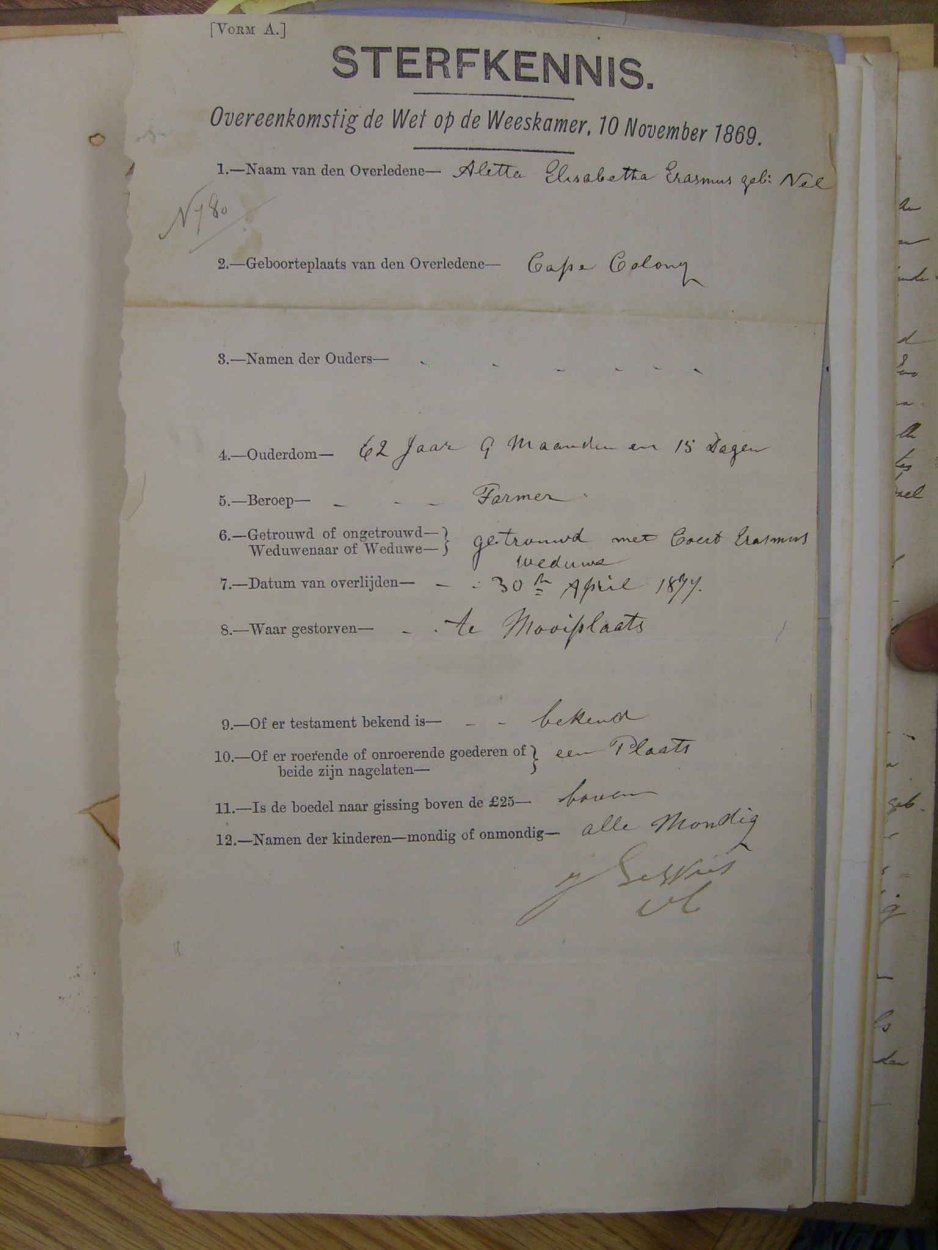 [VORM A.]
STERFKENNIS.
Overeenkomstig de Wet op de Weeskamer, 10 November 1869.
1.—Naam van den Overledene— Aletta Elisabetha Erasmus geb: Nel
2.—Geboorteplaats van den Overledene— Cape Colony
3.—Namen der Ouders—
4.—Ouderdom— 62 Jaar 9 Maanden en 15 Dagen
5.—Beroep— Farmer
6.—Getrouwd of ongetrouwd— getrouwd met Coert Erasmus
Weduwenaar of Weduwe— weduwe
7.—Datum van overlijden— 30th April 1877.
8.—Waar gestorven— te Mooiplaats
9.—Of er testament bekend is— bekend
10.—Of er roerende of onroerende goederen of een Plaats
beide zijn nagelaten—
11.—Is de boedel naar gissing boven de £25— boven
12.—Namen der kinderen—mondig of onmondig— alle Mondig